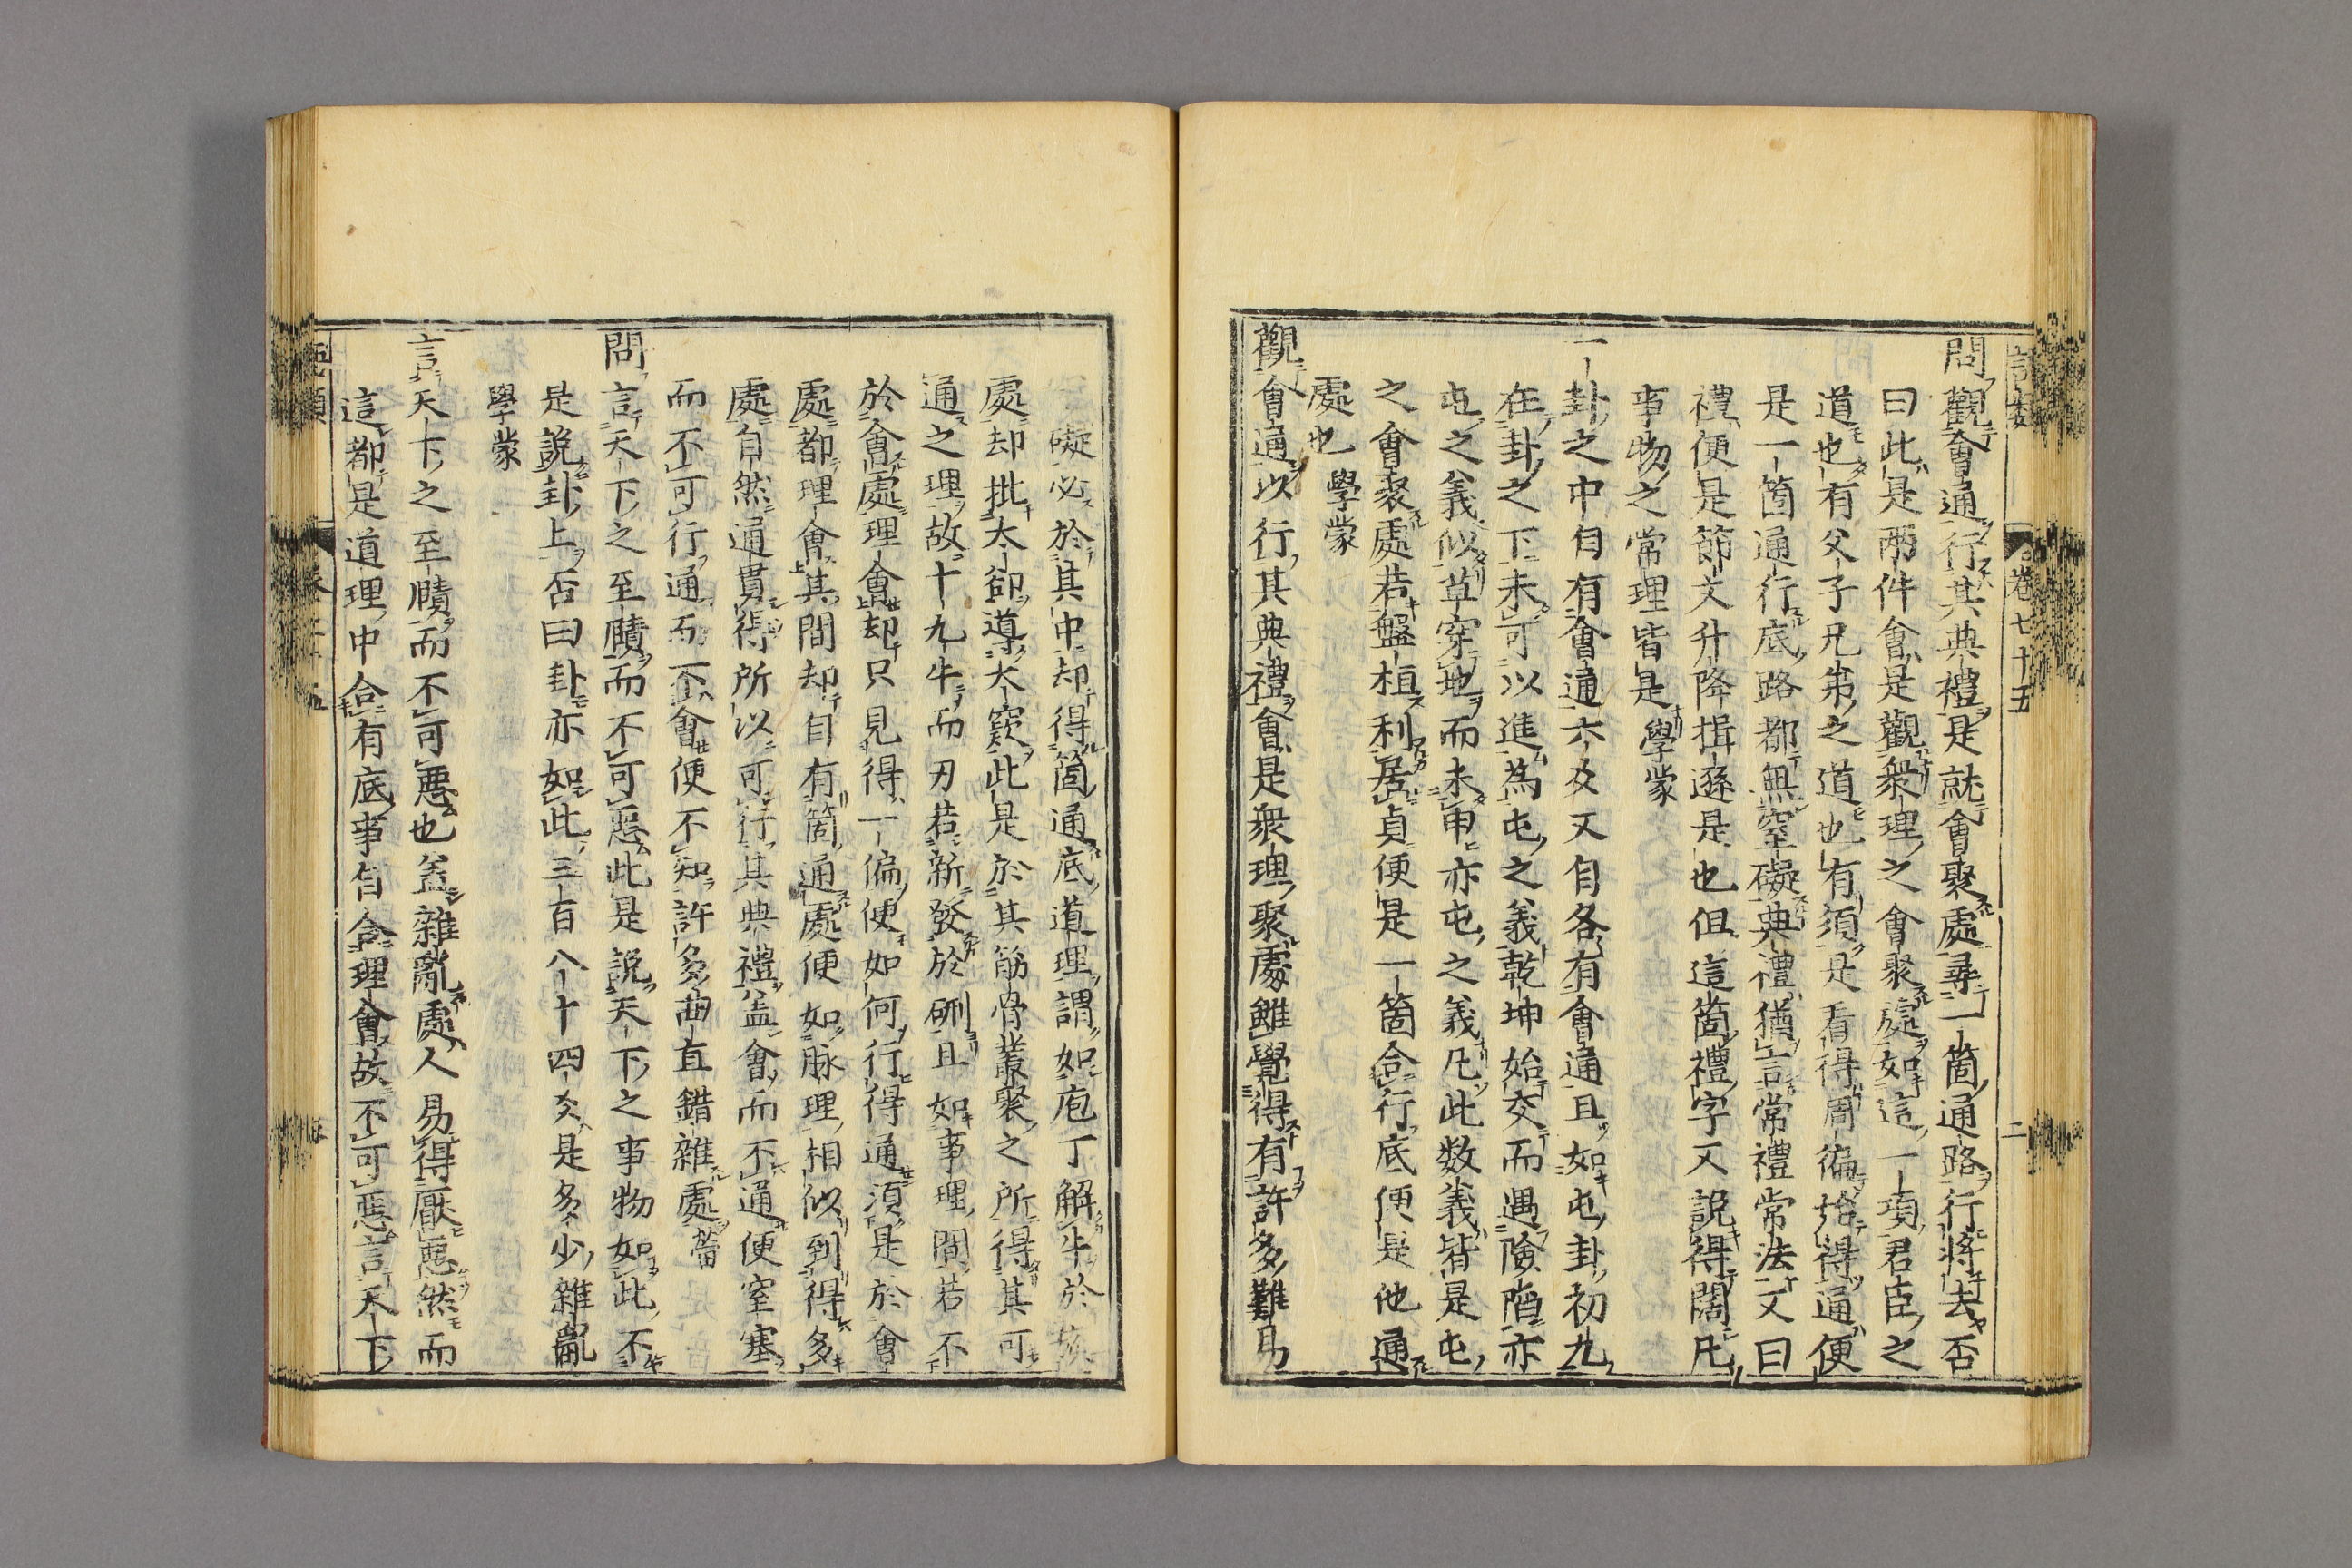 卷七十五
二
問觀會通行其典禮是就會聚處尋一箇通路行將去否
曰此是兩件會是觀衆理之會聚處如這一項君臣之
道也有父子兄弟之道也有須是看得周徧始得通便
是一箇通行底路都無窒礙典禮猶言常禮常法又曰
禮便是節文升降揖遜是也但這箇禮字又說得闊凡
事物之常理皆是學蒙
一卦之中自有會通六爻又自各有會通且如屯卦初九
在卦之下未可以進為屯之義乾坤始交而遇險陷亦
屯之義似草穿地而未申亦屯之義凡此数義皆是屯
之會聚處若盤桓利居貞便是一箇合行底便是他通
處也學蒙
觀會通以行其典禮會是衆理聚處雖覺得有許多難易
礙必於其中却得箇通底道理謂如庖丁解牛於族
處却批大卻導大窾此是於其筋骨叢聚之所得其可
通之理故十九牛而刃若新發於硎且如事理間若不
於會處理會却只見得一偏便如何行得通須是於會
處都理會其間却自有箇通處便如脉理相似到得多
處自然通貫得所以可行其典禮蓋會而不通便窒塞
而不可行通而不會便不知許多曲直錯雜處䕫
問言天下之至賾而不可惡此是說天下之事物如此不
是說卦上否曰卦亦如此三百八十四爻是多少雜亂
學蒙
言天下之至賾而不可惡也盖雜亂處人易得厭惡然而
這都是道理中合有底事自合理會故不可惡言天下